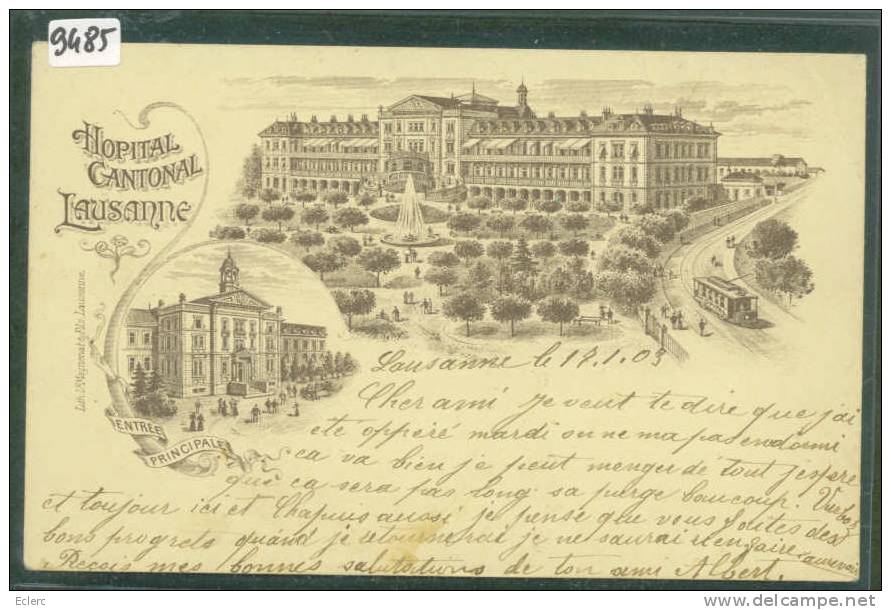 9485
HOPITAL
CANTONAL
LAUSANNE
ENTRÉE
PRINCIPALE
Lausanne le 17.1.03
Cher ami Je veut te dire que j'ai
ete opperé mardi on ne ma pas endormi
ca va bien je peut menger de tout j'espre
que ca sera pas long sa purge beaucoup.
et toujour ici et Chapuis aussi je pense que vous faites des
bons progrets quand je retournerai je ne saurai rien faire
au revoir
Recois mes bonnes salutations de ton ami Albert.
Eclerc
www.delcampe.net